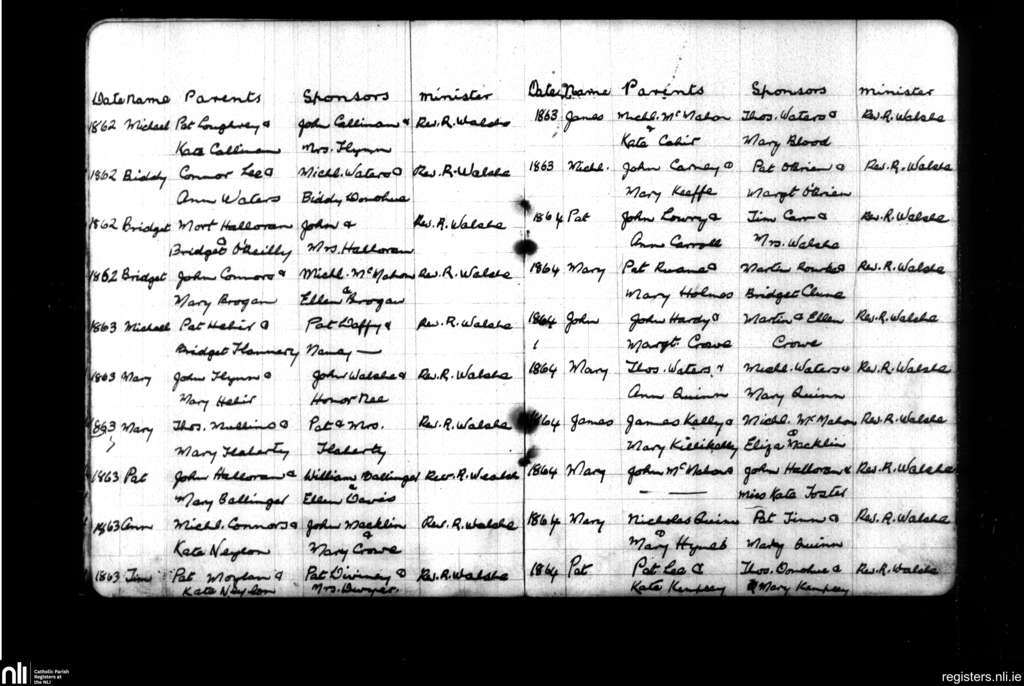 Date Name Parents Sponsors Minister
1862 Michael Pat Loughrey & John Callinan & Rev. R. Walshe
Kate Callinan Mrs. Flynn
1862 Biddy Connor Lee & Michl. Waters & Rev. R. Walshe
Ann Waters Biddy Donohue
1862 Bridget Mort Halloran John & Rev. R. Walshe
& Bridget O'Reilly Mrs. Halloran
1862 Bridget John Connors & Michl. McMahon Rev. R. Walshe
Mary Brogan Ellen & Brogan
1863 Michael Pat Hehir & Pat Daffy & Rev. R. Walshe
Bridget Flannery Nancy —
1863 Mary John Flynn & John Walshe & Rev. R. Walshe
Mary Hehir Honor Nee
1863 Mary Thos. Mullins & Pat & Mrs. Rev. R. Walshe
Mary Flaherty Flaherty
1863 Pat John Halloran & William Dallinger Rev. R. Walshe
Mary Ballinger Ellen & Davis
1863 Ann Michl. Connors & John Macklin Rev. R. Walshe
Kate Neylon & Mary Crowe
1863 Tim Pat Moylan & Pat & Rev. R. Walshe
Kate Neylon Mrs. Dwyer.
Date Name Parents Sponsors Minister
1863 James Michl. McMahon Thos. Waters & Rev. R. Walshe
& Kate Cahir Mary Blood
1863 Michl. John Carney & Pat O'Brien & Rev. R. Walshe
Mary Keeffe Margt O'Brien
1864 Pat John Lowry & Tim Carr & Rev. R. Walshe
Ann Carroll Mrs. Walshe
1864 Mary Pat Ruane & Martin Rourke & Rev. R. Walshe
Mary Holmes Bridget Clune
1864 John John Hardy & Martin & Ellen Rev. R. Walshe
Margt. Crowe Crowe
1864 Mary Thos. Waters & Michl. Waters & Rev. R. Walshe
Ann Quinn Mary Quinn
1864 James James Kelly & Michl. McMahon Rev. R. Walshe
Mary Killikelly Eliza & Macklin
1864 Mary John McMahon John Halloran & Rev. R. Walshe
— — Miss Kate Foster
1864 Mary Nicholas Quinn Pat Finn & Rev. R. Walshe
& Mary Hynes Mary Quinn
1864 Pat Pat Lee & Thos. Donohue & Rev. R. Walshe
Kate Kempsey & Mary Kempsey
nli Catholic Parish
Registers at
the NLI
registers.nli.ie